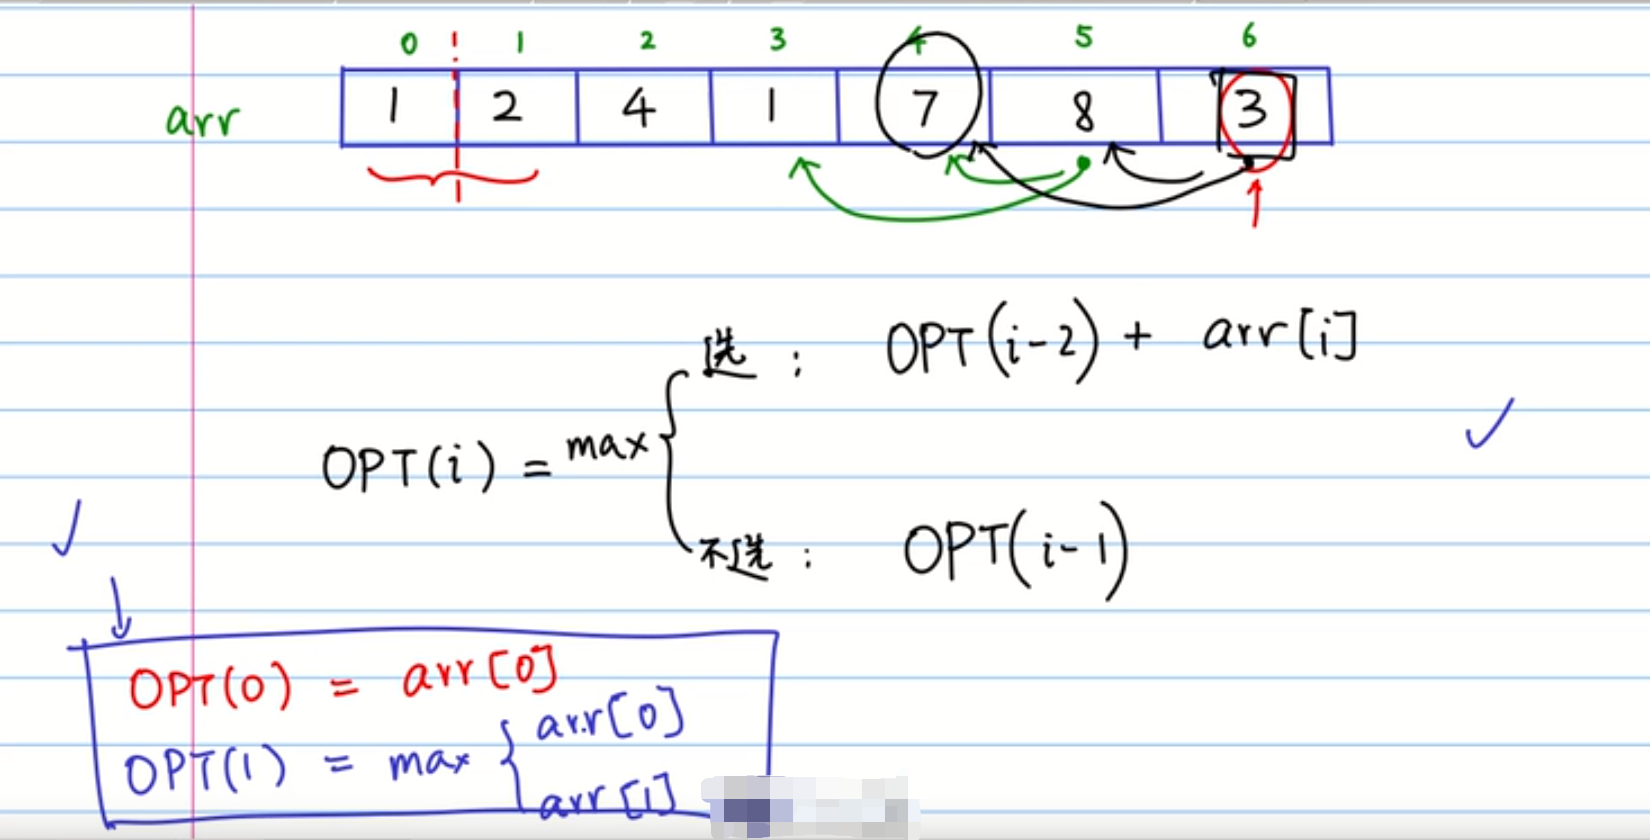 0 1 2 3 4 5 6
arr 1 2 4 1 7 8 3
选： OPT(i-2) + arr[i]
OPT(i) = max
不选： OPT(i-1)
OPT(0) = arr[0]
OPT(1) = max { arr[0]
arr[1]